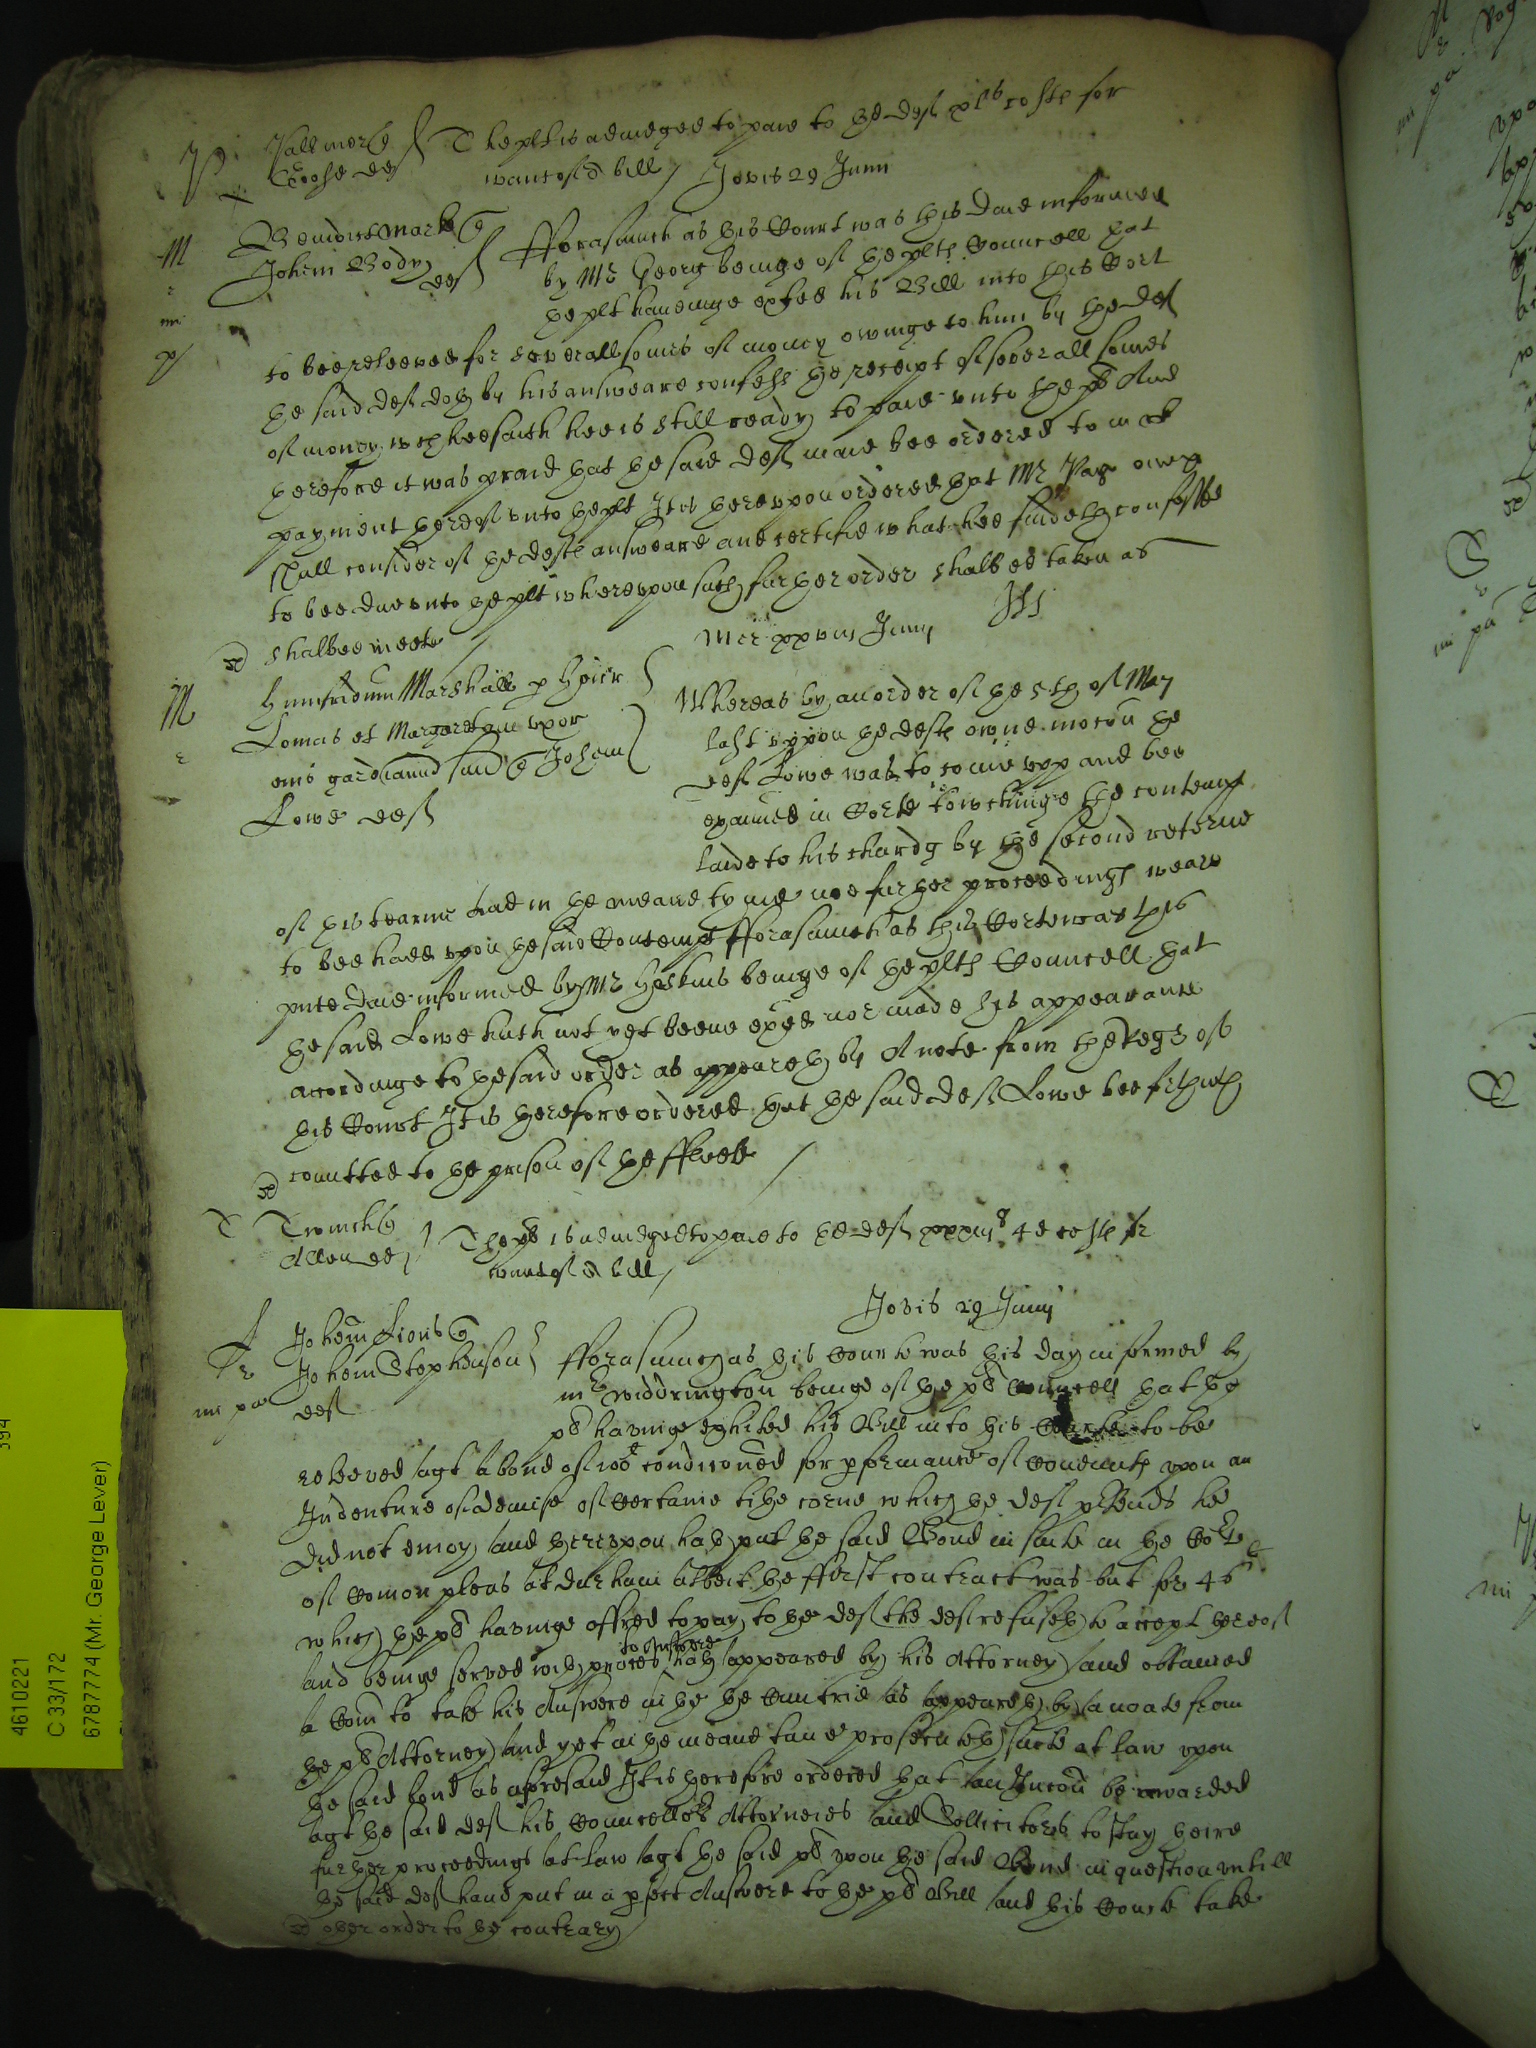 The plt is adiudged to paie to the deft xxs costs for
want of a bill / Jovis 29 Junii
M
Forasmuch as this Court was this daie informed
Johem Body deft
by Mr Georg beinge of the plts Councell that
the plt haveinge exhibited his Bill into this Cort
to bee releeved for severall somes of money owinge to him by the deft
the said deft doth by his answeare confess the receipt of severall somes
of money wch hee saith hee is still ready to paie unto the plt And
therefore it was praid that the said deft maie bee ordered to make
payment thereof unto the plt It is thereupon ordered that Mr Page
shall consider of the defts answeare and certifie what hee findeth confessed
to bee due unto the plt whereupon such further order shalbee taken as
shalbee meete /
Mer xxviii Junii
M
Humfridum Marshall p
Lomas et Margaretam uxor
eius gardianum suu q Johem
Lowe deft
Whereas by an order of the 5th of May
last uppon the defts owne mocon the
deft Lowe was to come upp and bee
examined in Corte towchinge the contempt
laide to his chardg by the second returne
of this tearme and in the meane tyme noe further proceedings weare
to bee hadd upon the said Contempt Forasmuch as this Corte was this
pnte daie informed by Mr Hoskins beinge of the plts Councell that
the said Lowe hath not yet beene exd nor made his appearance
accordinge to the said order as appeareth by A note from the Regr of
this Court It is therefore ordered that the said deft Lowe bee forthwth
comitted to the prison of the Fleete /
T
Twinch q
Allen deft
The plt is adiudged to paie to the deft xxxiiis 4d costs for
want of a bill /
Jovis 29 Junii
Johem Lions q
Johem Stephenson
deft
Forasmuch as this Courte was this day informed by
Mr Widdrington beinge of the plts Councell that the
plt havinge exhibited his Bill into this Courte to be
releeved agt a bond of condiconed for pformance of Covenants upon an
Indenture of demise of Certaine tithe corne which the deft ptends he
did not enioy and thereupon hath put the said Bond in suite in the Corte
of Comon pleas at Durham albeit the first contract was but for 46s
which the plt havinge offred to pay to the deft the deft refuseth to accept thereof
to Answere
and beinge served with proces hath appeared by his Attorney and obtained
a Com to take his Answere in the Countrie as appeareth by a noate from
the plts Attorney and yet in the meane time prosecuteth suite at law upon
the said bond as aforesaid It is therefore ordered that an Iniuncon be awarded
agt the said deft his Councellors Attorneies and Sollicitors to stay theire
further proceedings at law agt the said plt upon the said Bond in question untill
the said deft have put in a pfect Answere to the plts Bill and this Courte take
other order to the contrary
4610221
C 33/172
6787774 (Mr. George Lever)